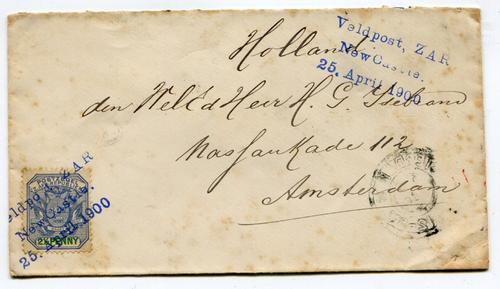 Veldpost, ZAR
NewCastle.
25. April 1900
Holland.
den WelEd Heer H. G. IJsebrand
Nassaukade 112
Amsterdam
eldpost, ZAR
NewCastle.
25. April 1900
2½ PENNY